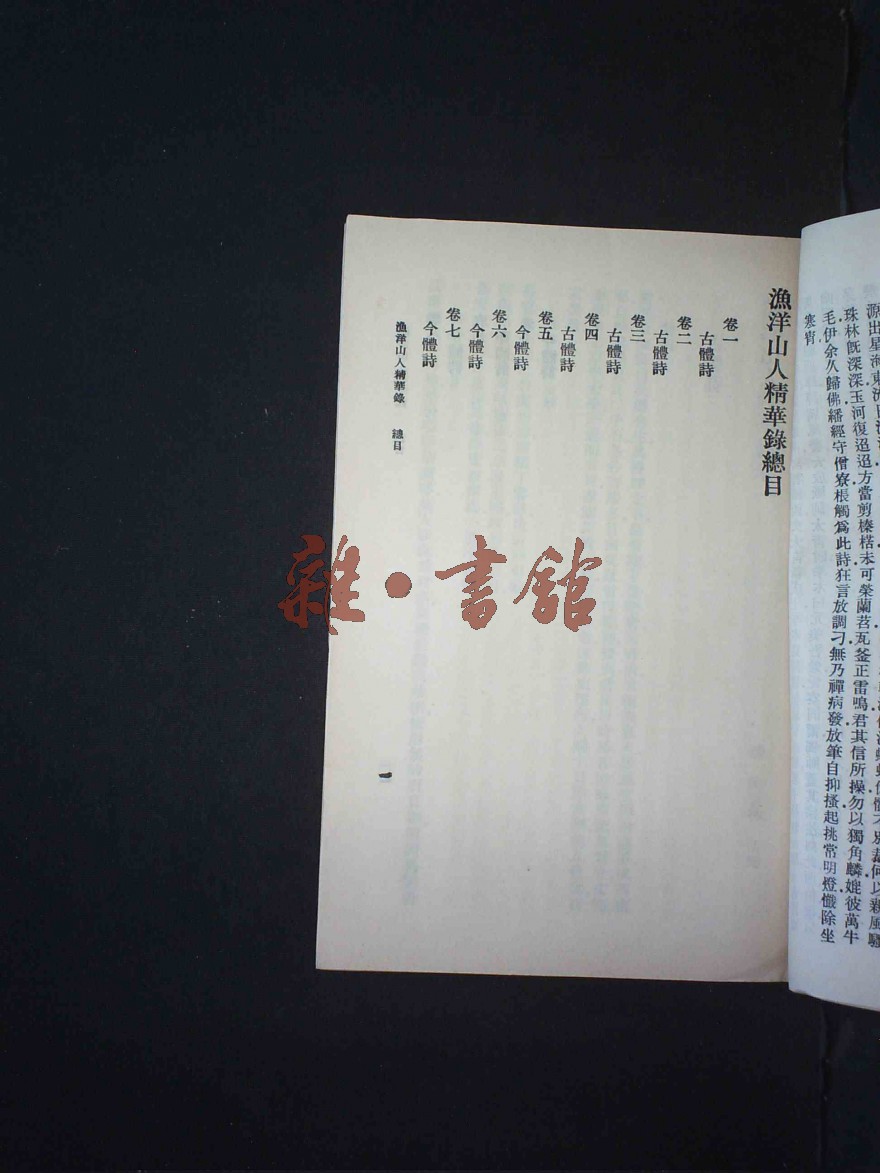 珠林既深深玉河復迢迢方當剪榛楛未可榮蘭苕瓦釜正雷鳴君其信所操勿以獨角麟媲彼萬牛
毛伊余久歸佛繙經守僧寮棖觸爲此詩狂言放調刁無乃禪病發放筆自抑搔起挑常明燈懺除坐
寒宵
漁洋山人精華錄總目
卷一
古體詩
卷二
古體詩
卷三
古體詩
卷四
古體詩
卷五
今體詩
卷六
今體詩
卷七
今體詩
漁洋山人精華錄 總目
一
雜·書館